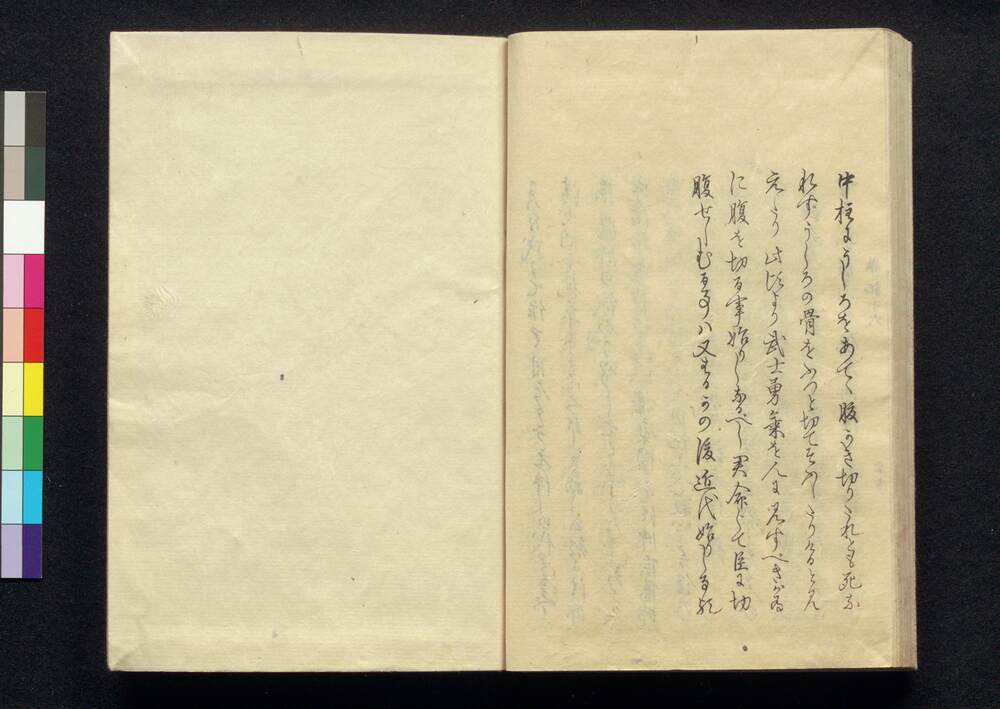 中柱にうしろをあてゝ腹かき切りたれとも死な
れすうしろの骨をふつと切てそふしたりけるとみ
えたり此比より武士勇気を人に見すべきか為
に腹を切る事始りしなるべし君命として臣に切
腹せしむる事ハ又はるかの後近代始りし事